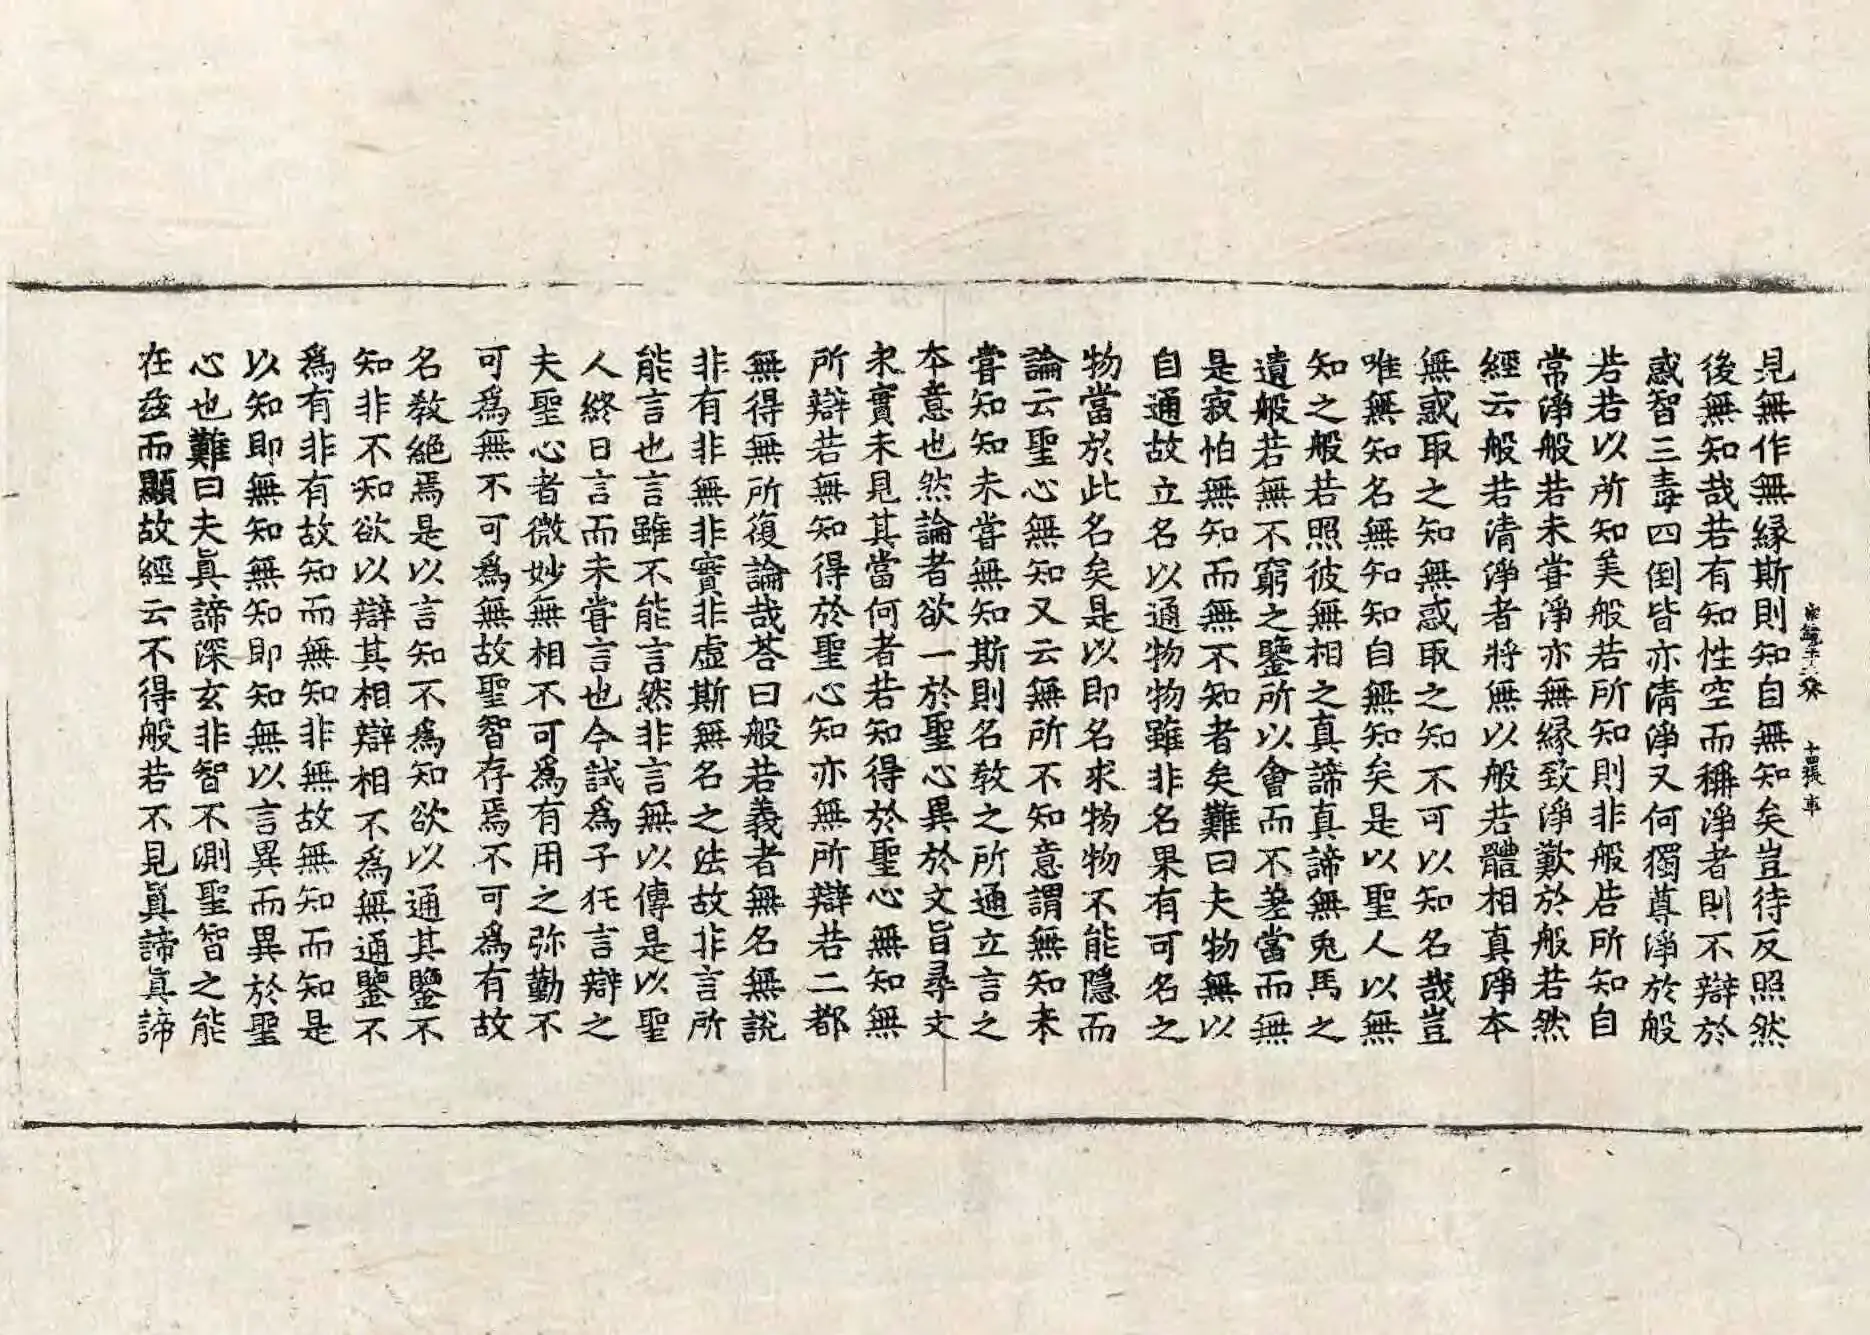 見無作無緣斯則知自無知矣豈待反照然
後無知哉若有知性空而稱淨者則不辯於
惑智三毒四倒皆亦清淨又何獨尊淨於般
若若以所知美般若所知則非般若所知自
常淨般若未甞淨亦無緣致淨歎於般若然
經云般若清淨者將無以般若體相真淨本
無惑取之知無惑取之知不可以知名哉豈
唯無知名無知知自無知矣是以聖人以無
知之般若照彼無相之真諦真諦無兎馬之
遺般若無不窮之鑒所以會而不差當而無
是寂怕無知而無不知者矣難曰夫物無以
自通故立名以通物物雖非名果有可名之
物當於此名矣是以即名求物物不能隱而
論云聖心無知又云無所不知意謂無知未
甞知知未甞無知斯則名教之所通立言之
本意也然論者欲一於聖心異於文旨尋文
求實未見其當何者若知得於聖心無知無
所辯若無知得於聖心知亦無所辯若二都
無得無所復論哉荅曰般若義者無名無說
非有非無非實非虛斯無名之法故非言所
能言也言雖不能言然非言無以傳是以聖
人終日言而未甞言也今試爲子狂言辯之
夫聖心者微妙無相不可爲有用之弥勤不
可爲無不可爲無故聖智存焉不可爲有故
名教絕焉是以言知不爲知欲以通其鑒不
知非不知欲以辯其相辯相不爲無通鑒不
爲有非有故知而無知非無故無知而知是
以知即無知無知即知無以言異而異於聖
心也難曰夫眞諦深玄非智不測聖智之能
在茲而顯故經云不得般若不見眞諦眞諦